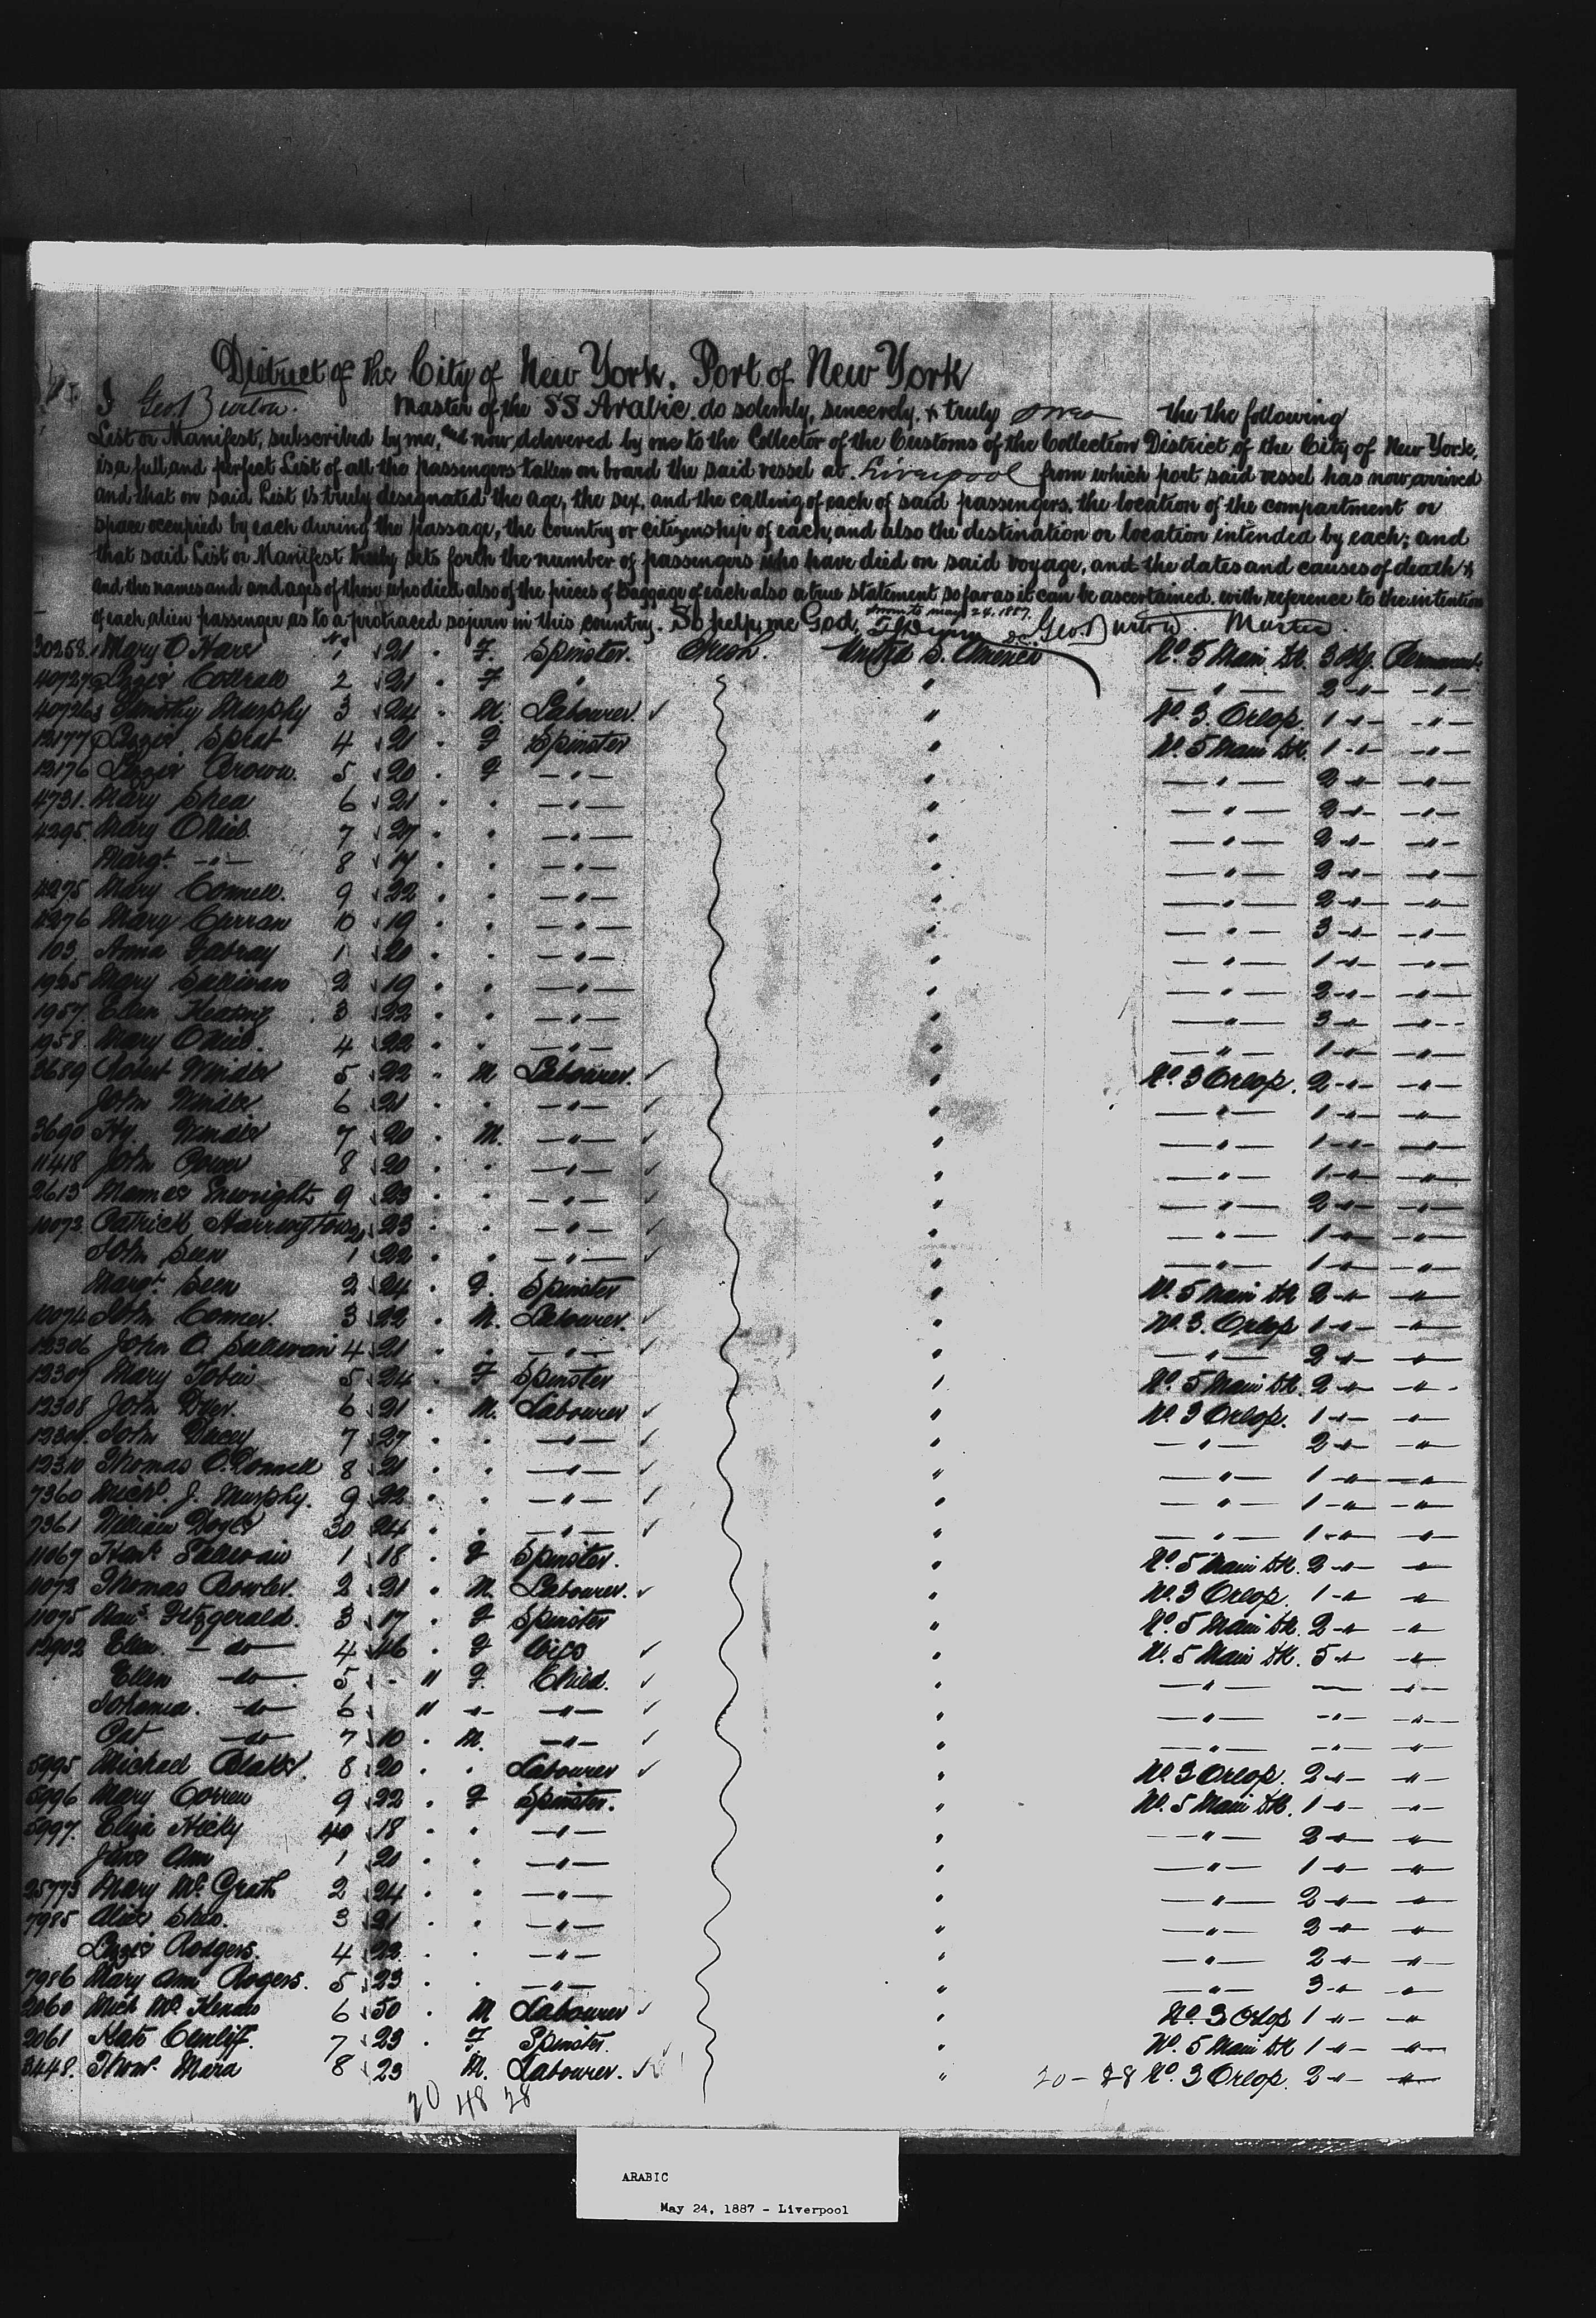 District of the City of New York, Port of New York
I Geo. Burton. Master of the SS Arabic do solemnly, sincerely, & truly the the following
List or Manifest, subscribed by me, and now delivered by me to the Collector of the Customs of the Collection District of the City of New York,
is a full and perfect List of all the passengers taken on board the said vessel at Liverpool from which port said vessel has now arrived
and that on said List is truly designated the age, the sex, and the calling of each of said passengers, the location of the compartment or
space occupied by each during the passage, the country or citizenship of each, and also the destination or location intended by each; and
that said List or Manifest truly sets forth the number of passengers who have died on said voyage, and the dates and causes of death &
and the names and and ages of those who died also of the pieces of Baggage of each also a true statement so far as it can be ascertained with reference to the intention
of each alien passenger as to a protraced sojurn in this country. So help me God. May 24. 1887. Geo. Burton. Master.
30258. Mary O'Hare 1 21 F. Spinster. Irish. United S. America No. 5 Main Dk. 3 Pkg. Permanent.
40727 Lizzie Cottrall 2 21 F " " — " — 2 -"- -"-
40726 Timothy Murphy 3 24 M. Labourer. " No. 3. Orlop. 1 -"- -"-
12177 Lizzie Sprat 4 21 F Spinster " No. 5 Main Dk. 1 -"- -"-
12176 Lizzie Brown. 5 20 F — " — " — " — 2 -"- -"-
4731. Mary Shea 6 21 " — " — " — " — 2 -"- -"-
4295. Mary 7 27 " — " — " — " — 2 -"- -"-
Margt. -"- 8 17 " — " — " — " — 2 -"- -"-
4275 Mary Connell. 9 22 " — " — " — " — 2 -"- -"-
4276 Mary Curran 10 19 " — " — " — " — 3 -"- -"-
103. Anna 1 20 " — " — " — " — 1 -"- -"-
1925 Mary Sullivan 2 19 " — " — " — " — 2 -"- -"-
1957. Ellen Keating 3 22 " — " — " — " — 3 -"- -"-
1958. Mary 4 22 " — " — " — " — 1 -"- -"-
3689 Robert Winder 5 22 M Labourer. " No. 3 Orlop. 2 -"- -"-
John Winder 6 21 " — " — " — " — 1 -"- -"-
3690 Hy. Winder 7 20 M. — " — " — " — 1 -"- -"-
11418 John Power 8 20 " — " — " — " — 1 -"- -"-
2613 Enwright 9 23 " — " — " — " — 2 -"- -"-
10073 Patrick Harrington 20 23 " — " — " — " — 1 -"- -"-
John Seen 1 22 " — " — " — " — 1 -"- -"-
Margt. Seen 2 24 F. Spinster " No. 5 Main Dk 2 -"- -"-
10074 John Connor. 3 22 M. Labourer. " No. 3. Orlop 1 -"- -"-
12306 John O. Sullivan 4 21 " — " — " — " — 2 -"- -"-
12307 Mary Tobin 5 24 F Spinster " No. 5 Main Dk. 2 -"- -"-
12308 John Dyer. 6 21 M. Labourer " No. 3 Orlop. 1 -"- -"-
John Dacey 7 27 " — " — " — " — 2 -"- -"-
12310 Thomas O'Connell 8 21 " — " — " — " — 1 -"- -"-
7360 Michl. J. Murphy. 9 22 " — " — " — " — 1 -"- -"-
7361 William 30 24 " — " — " — " — 1 -"- -"-
11067 Sullivan 1 18 F Spinster. " No. 5 Main Dk. 2 -"- -"-
11072 Thomas Bowler. 2 21 M. Labourer. " No. 3 Orlop. 1 -"- -"-
11075 Fitzgerald. 3 17 F Spinster " No. 5 Main Dk. 2 -"- -"-
12902 Ellen. -do- 4 46 F Wife " No. 5 Main Dk. 5 -"- -"-
Ellen -do- 5 - " F. Child. " — " — -"-
Johanna. -do- 6 " -"- — " — " — " — -"- -"-
Pat -do- 7 10 M. — " — " — " — -"- -"-
5995 Michael Blake. 8 20 " Labourer " No. 3 Orlop. 2 -"- -"-
5996 Mary 9 22 F Spinster. " No. 5 Main Dk. 1 -"- -"-
5997. Eliza Hickly 40 18 " — " — " — " — 2 -"- -"-
Jane Ann 1 20 " — " — " — " — 1 -"- -"-
25773 Mary McGrath 2 24 " — " — " — " — 2 -"- -"-
7985 Alice Shea. 3 21 " — " — " — " — 2 -"- -"-
Lizzie Rodgers. 4 22 " — " — " — " — 2 -"- -"-
7986 Mary Ann Rogers. 5 23 " — " — " — " — 3 -"- -"-
2060 Mich Mc 6 50 M Labourer " No. 3 Orlop 1 -"- -"-
2061 Kate Cunliff. 7 23 F Spinster. " No. 5 Main Dk 1 -"- -"-
3448. Thos. Mara 8 23 M. Labourer. " 20 - 28 No. 3 Orlop. 2 -"- -"-
20 48 28
ARABIC
May 24, 1887 - Liverpool